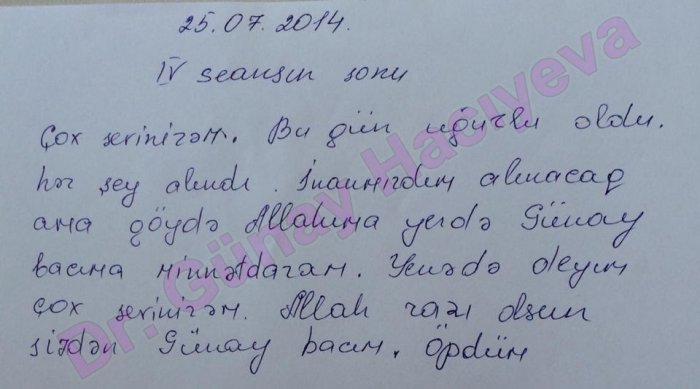 25.07.2014.
IV seansın sonu
Çox serinizəm. Bu gün uğurlu oldu.
hər şey alındı. İnanmırdım alınacaq
ama göydə Allahıma yerdə Günay
bacıma minnətdaram. Yenədə deyim
çox serinizəm. Allah razı olsun
sizdən Günay bacım. Öpdüm
Dr. Günay Hacıyeva